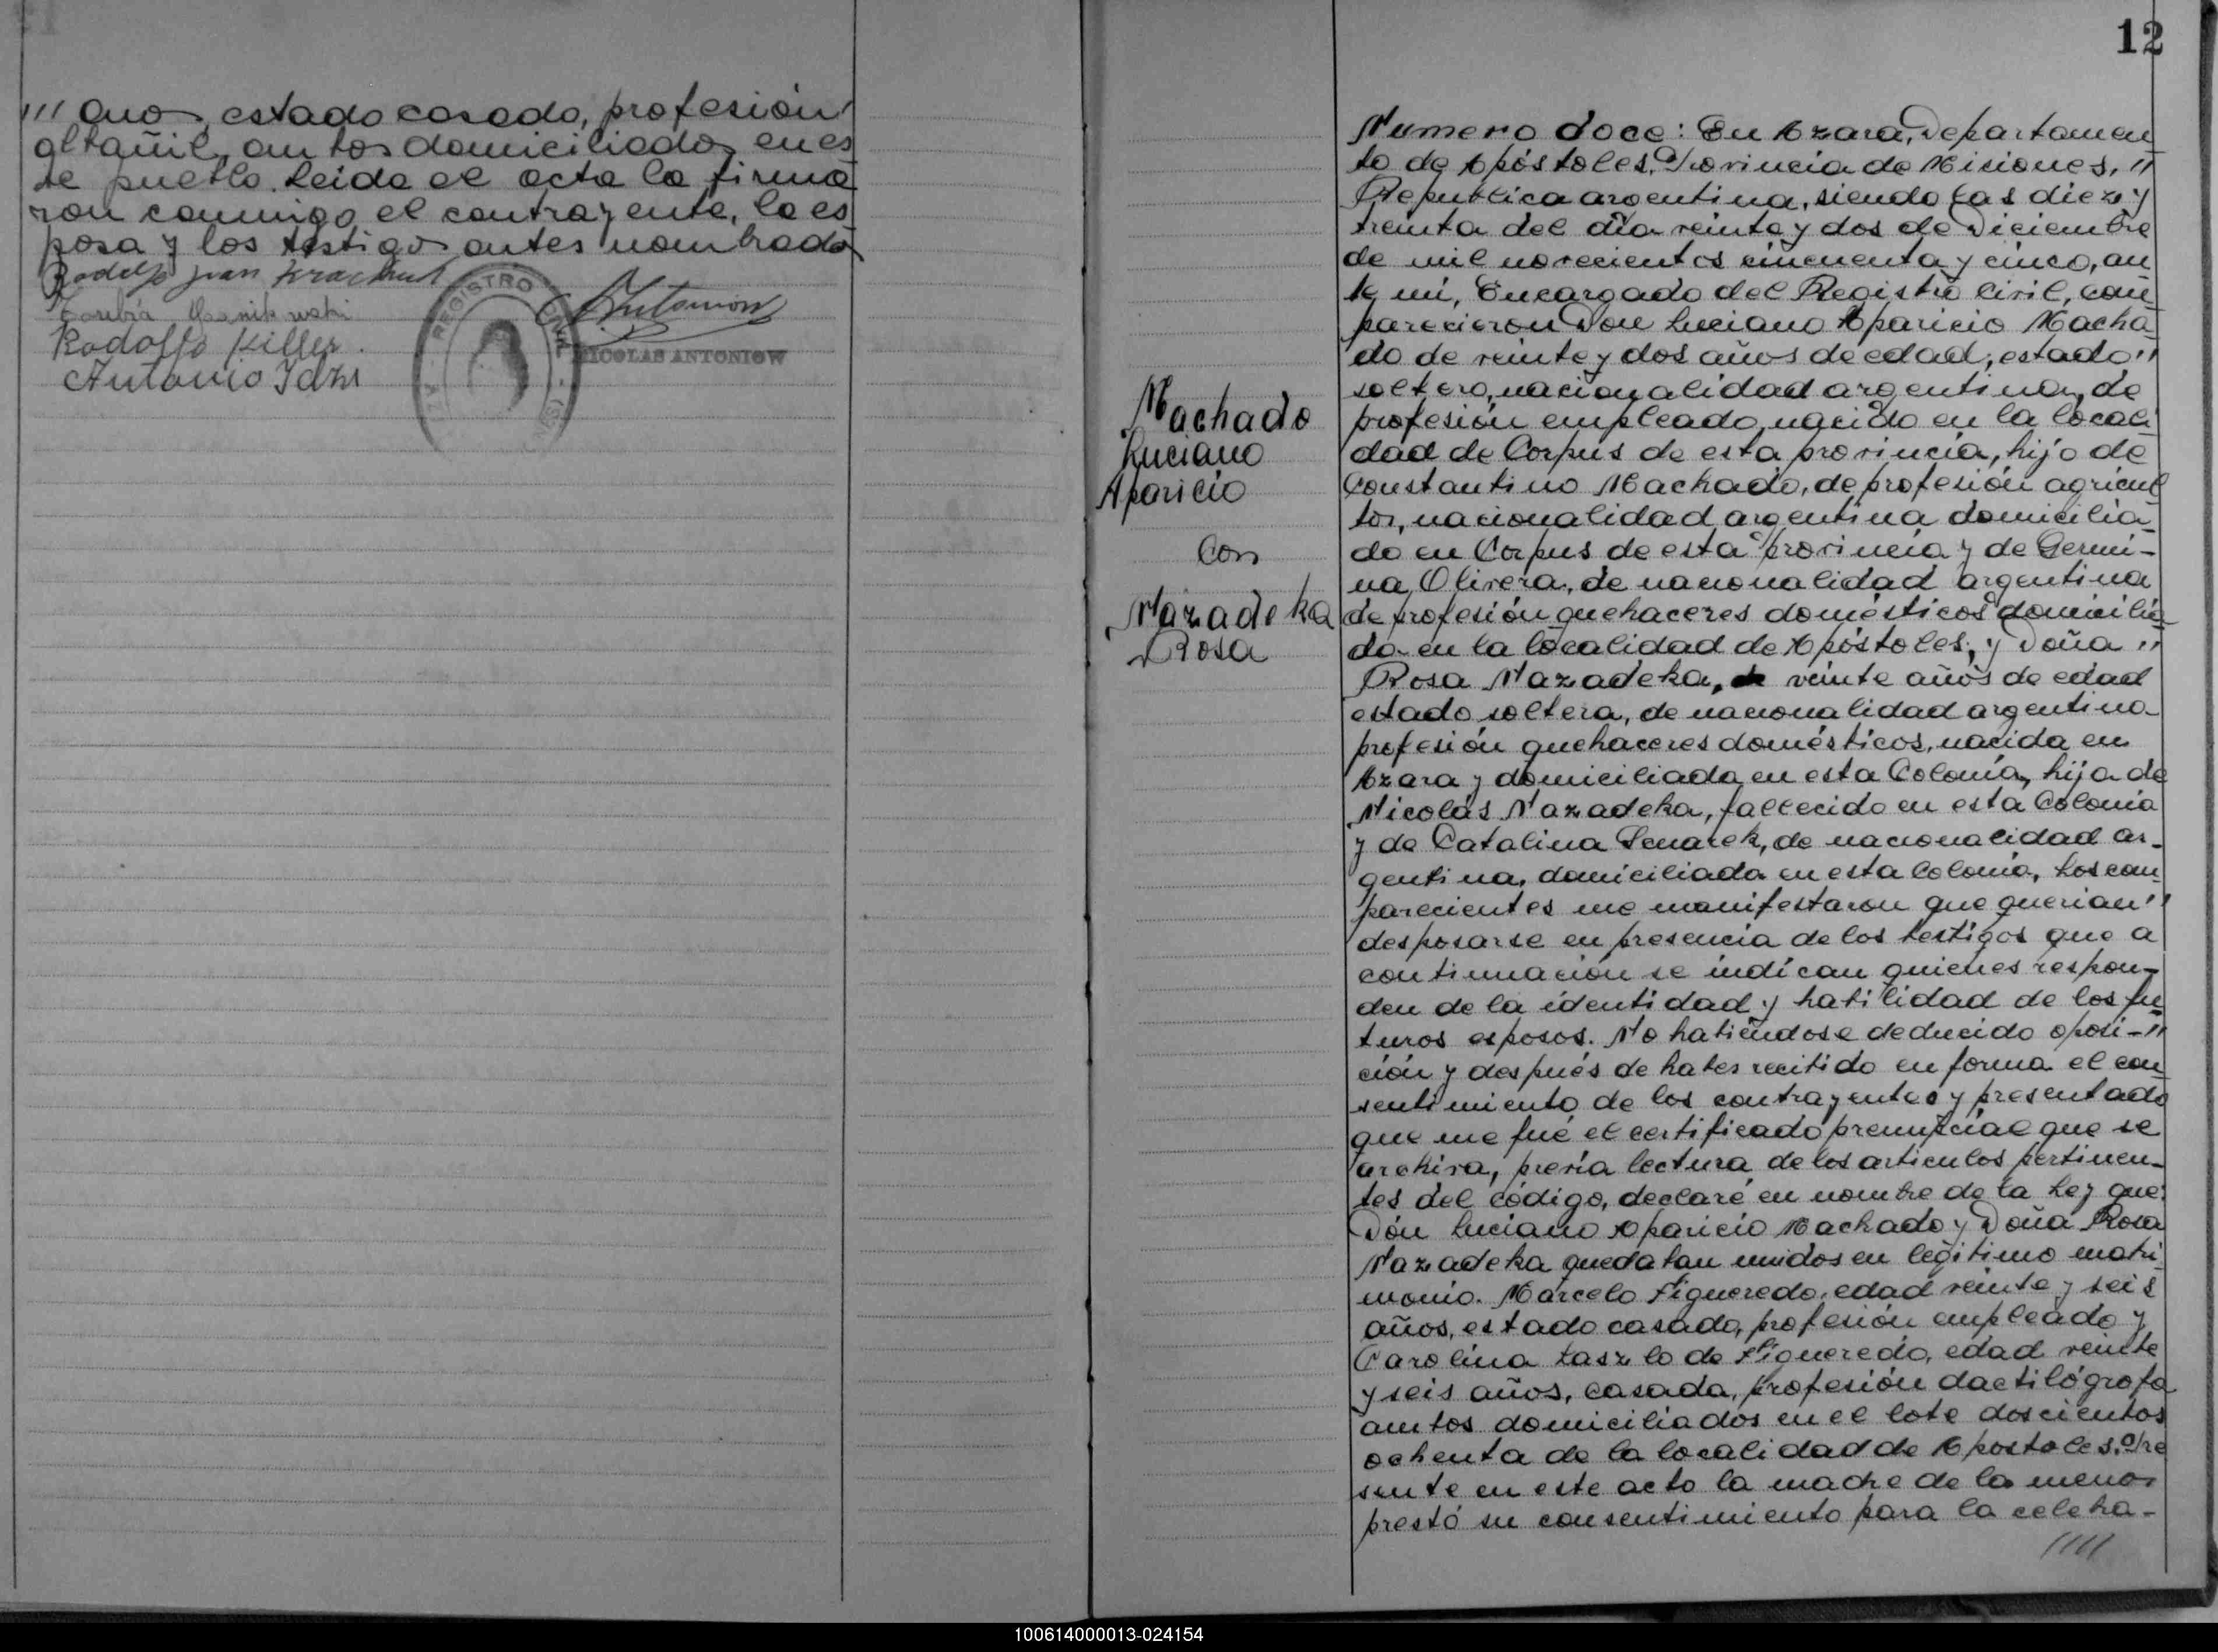 ''' anos, estado casado, profesión
albañil, ambos domiciliados en es
te pueblo. Leida el acta la firma
ron conmigo el contrayente, la es
posa y los testigos antes nombrados
Rodolfo Juan
Rodolfo Killer
Antonio
REGISTRO CIVIL
NICOLAS ANTONIOW
12
Machado
Luciano
Aparicio
Con
Nazadeka
Rosa
Numero doce: En Azara, Departamen
to de Apóstoles, Provincia de Misiones, "
Republica argentina, siendo las diez y
treinta del día veinte y dos de Diciembre
de mil novecientos cincuenta y cinco, an
te mí, Encargado del Registro Civil, com
parecieron Don Luciano Aparicio Macha
do de veinte y dos años de edad, estado "
soltero, nacionalidad argentina, de
profesión empleado, nacido en la locali
dad de Corpus de esta provincia, hijo de
Constantino Machado, de profesión agricul
tor, nacionalidad argentina domicilia
do en Corpus de esta provincia y de Germi-
na Olivera, de nacionalidad argentina
de profesión quehaceres domésticos domicilia
da en la localidad de Apóstoles, y Doña "
Rosa Nazadeka, de veinte años de edad
estado soltera, de nacionalidad argentina
profesión quehaceres domésticos, nacida en
Azara y domiciliada en esta Colonia, hija de
Nicolás Nazadeka, fallecido en esta Colonia
y de Catalina Senarek, de nacionalidad ar-
gentina, domiciliada en esta Colonia, Los com
parecientes me manifestaron que querian "
desposarse en presencia de los testigos que a
continuación se indican quienes respon-
den de la identidad y habilidad de los fu
turos esposos. No habiéndose deducido oposi-"
ción y después de haber recibido en forma el con
sentimiento de los contrayentes y presentado
que me fué el certificado prenupcial que se
archiva, previa lectura de los articulos pertinen-
tes del código, declaré en nombre de la Ley que:
Dón Luciano Aparicio Machado y Doña Rosa
Nazadeka quedaban unidos en legitimo matri
monio. Marcelo Figueredo, edad veinte y seis
años, estado casado, profesión empleado y
Carolina Laszlo de Figueredo, edad veinte
y seis años, casada, profesión dactilógrafa
ambos domiciliados en el lote doscientos
ochenta de la localidad de Apostoles. Pre
sente en este acto la madre de la menor
prestó su consentimiento para la celebra-
////
100614000013-024154